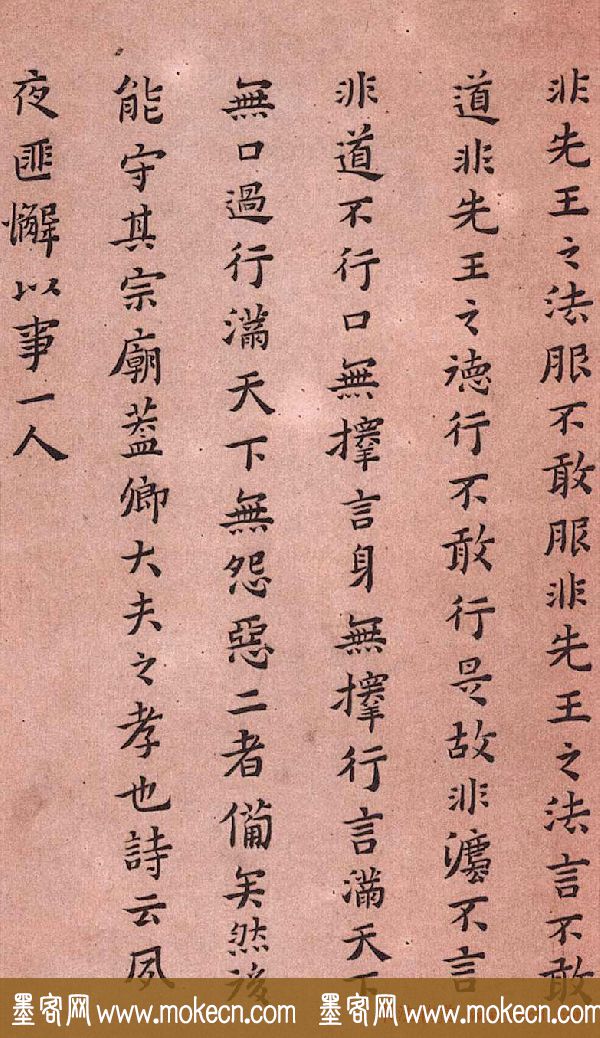 非先王之法服不敢服非先王之法言不敢
道非先王之德行不敢行是故非灋不言
非道不行口無擇言身無擇行言滿天下
無口過行滿天下無怨惡二者備矣然後
能守其宗廟蓋卿大夫之孝也詩云夙
夜匪懈以事一人
墨客网 www.mokecn.com 墨客网 www.mokecn.com